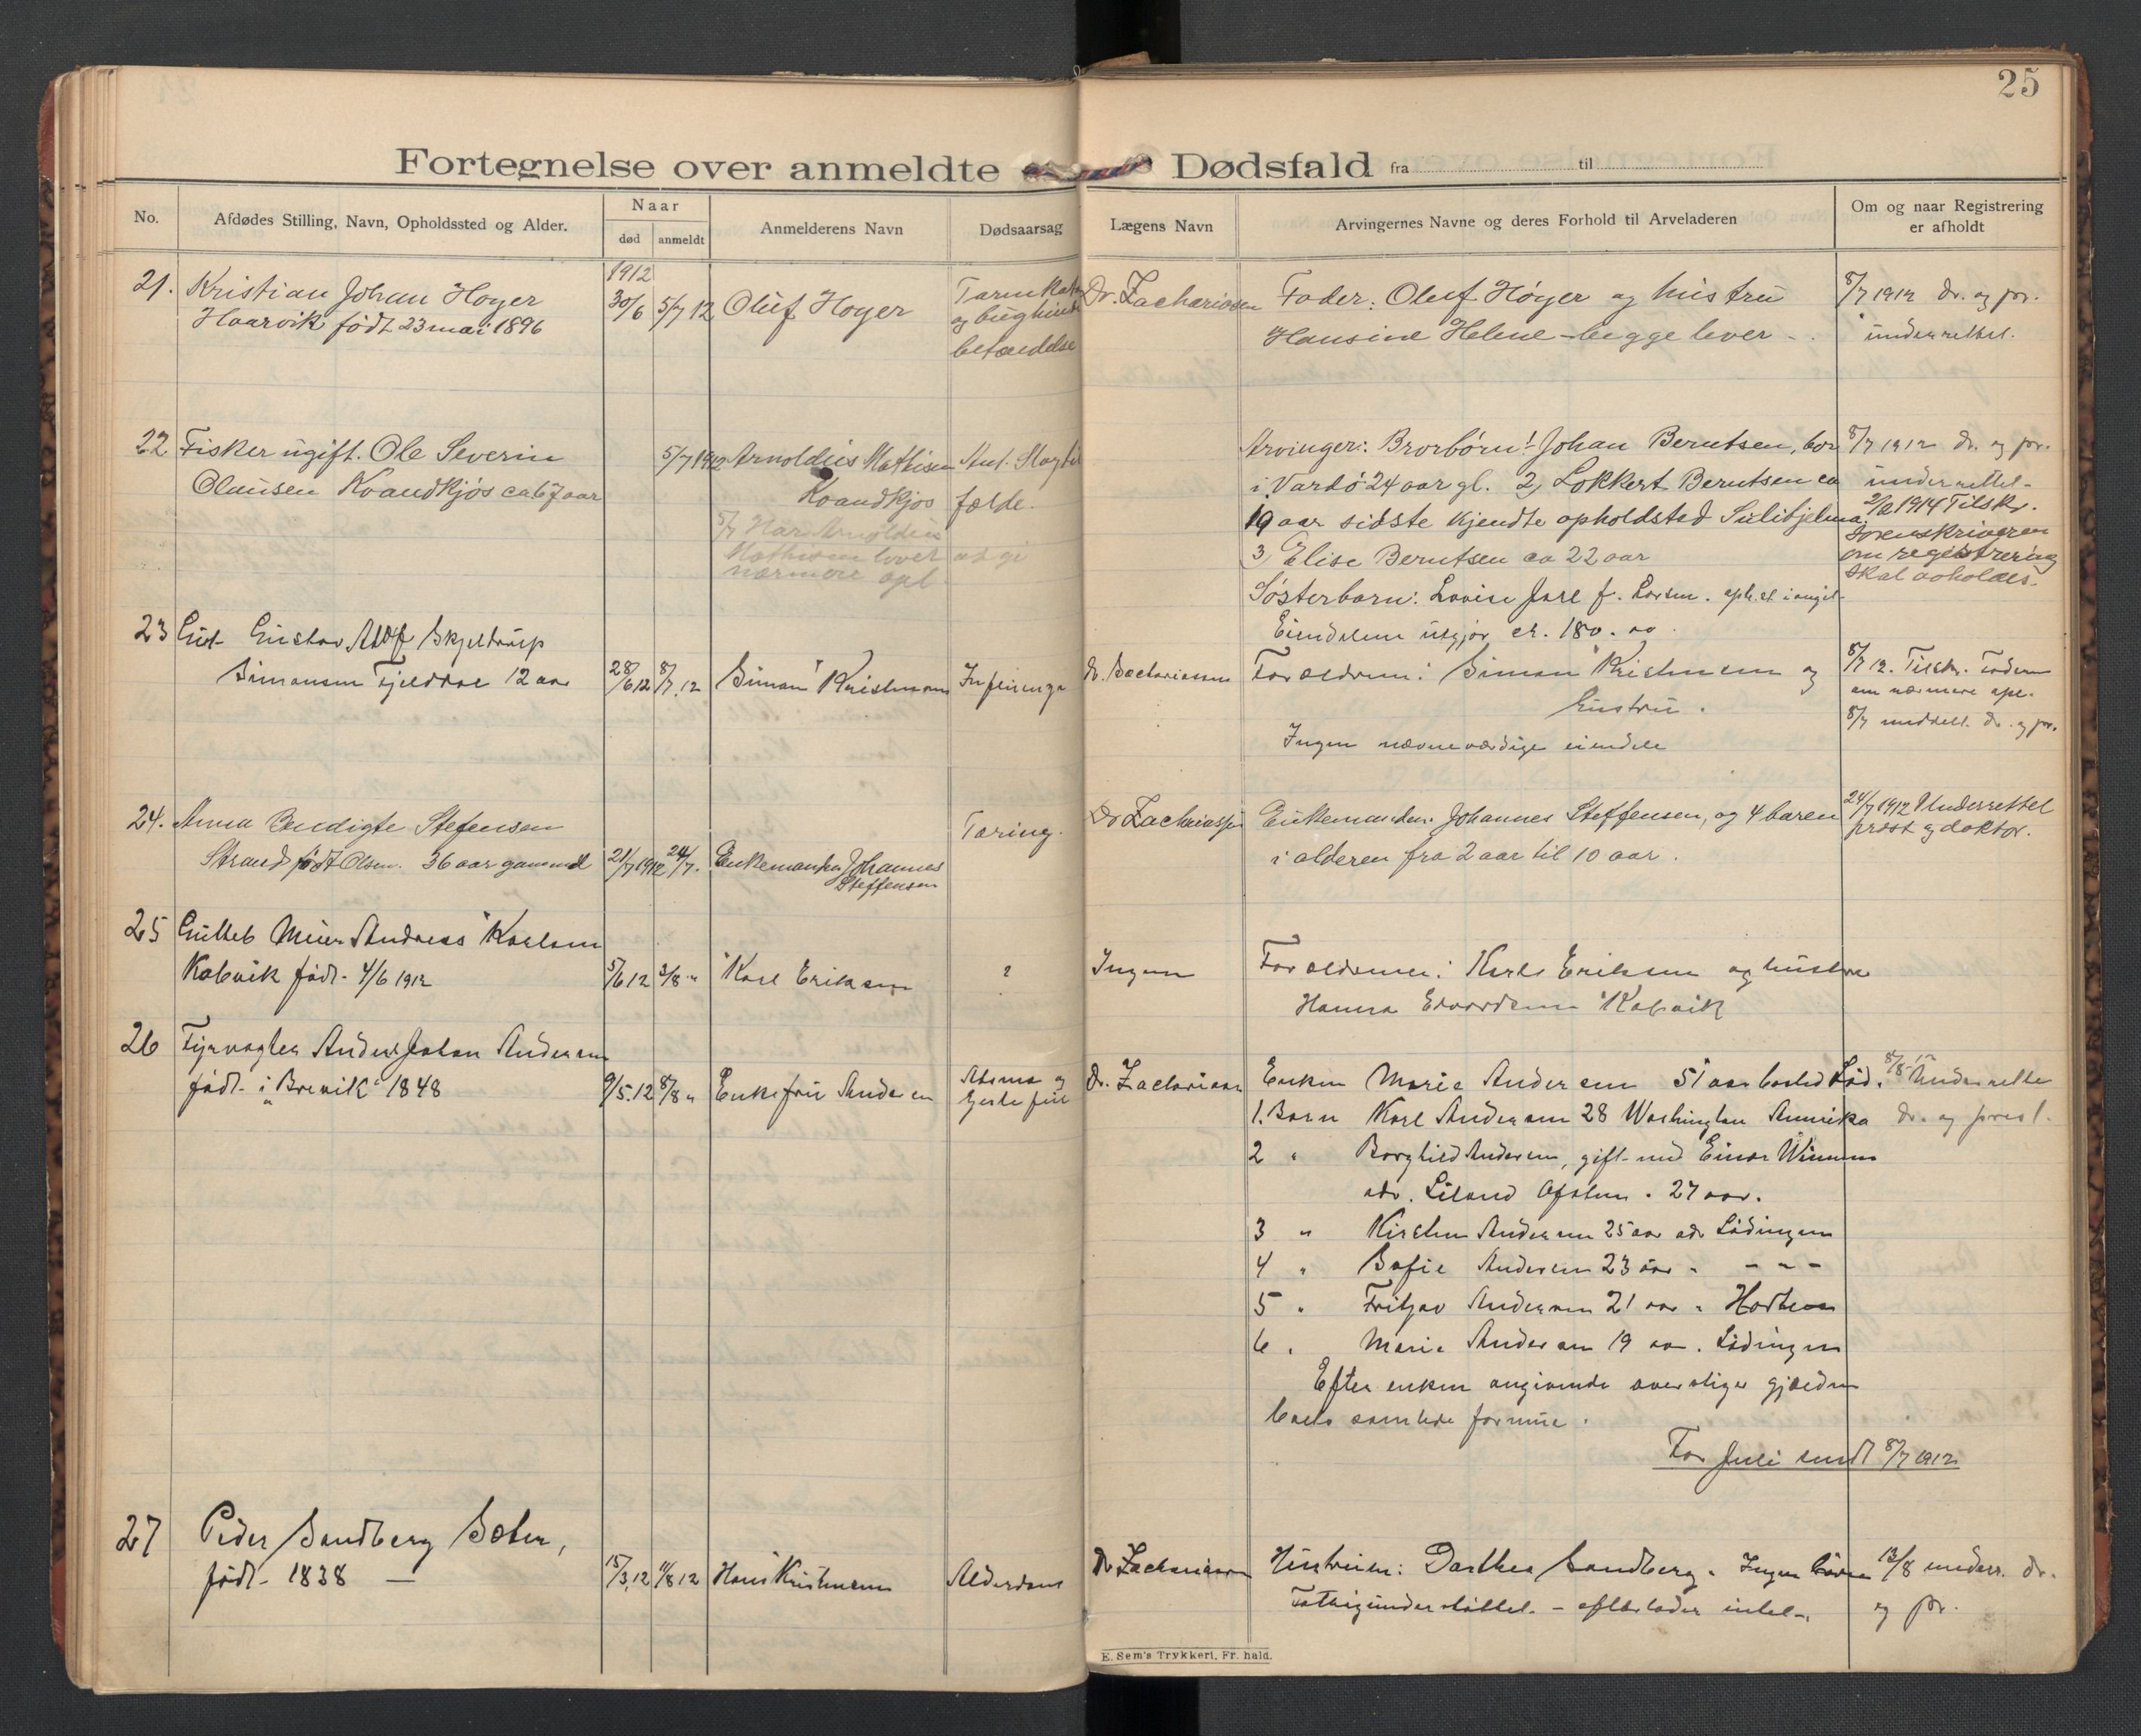 25
Fortegnelse over anmeldte Dødsfald fra til
No.
Afdødes Stilling, Navn, Opholdssted og Alder.
Naar
død anmeldt
Anmelderens Navn
Dødsaarsag
Lægens Navn
Arvingernes Navne og deres Forhold til Arveladeren
Om og naar Registrering
er afholdt
21. Kristian Johan Høyer
Haarvik født 23 mai 1896
1912
30/6 5/7 12
Oluf Hoyer
Tarmkatar
og bughinde
betændelse
Dr. Zachariasen
Fader: Oluf Höyer og hustru
Hansine Helene - begge lever -
8/7 1912 dr. og pr.
underrettet.
22. Fisker ugift. Ole Severin
Olausen Kvandkjøs ca 67 aar
5/7 1912
Arnoldus Mathisen
Kvandkjos
Ant. Slagtil
fælde.
5/7 Har Arnoldus
Mathisen lovet at gi
nærmere opl
Arvinger: Brorbørn: 1 Johan Berntsen, bor
i Vardö 24 aar gl. 2, Lokkert Berntsen ca
19 aar sidste kjendte opholdsted Sulitjelma
3, Elise Berntsen ca 22 aar
Søsterbarn: Lovise Juel f. Larsen.
Eiendelene utgjør ca. 180.00
8/7 1912 dr. og pr.
underrettet-
2/2 1914 Tilskr.
Sorenskriveren
om registrering
skal avholdes.
23 Gut Gustav Adolf Skjeldrup
Simonsen Fjelddal 12 aar
28/6 12 8/7.12
Simon Kristensen
Influenza
Dr. Zachariassen
Forældrene: Simon Kristensen og
hustru.
Ingen nævneværdige eiendele
8/7 12. Tilskr. Faderen
om nærmere opl.
8/7 meddelt dr. og pr.
24. Anna Bendigte Stefensen
Strand født Olsen. 36 aar gammel
21/7 1912 24/7.
Enkemanden Johannes
Steffensen
Tæring.
Dr Zachriassen
Enkemanden Johannes Steffensen, og 4 baren
i alderen fra 2 aar til 10 aar.
24/7 1912 Underrettet
prest og doktor.
25 Gutteb Meier Andreas Karlsen
Kobvik født- 4/6 1912
5/6 12 3/8 "
Karl Eriksen
?
Ingen
Forældrene: Karl Eriksen og hustru
Hanna Edvardsen Kobvik
26 Fyrvogter Anders Johan Andersen
født- i "Brevik" 1848
9/5.12 8/8 "
Enkefru Andersen
Atsma og
hjertefeil
Dr. Zachariasen
Enken Marie Andersen 51 aar bosted Lød.
1. Barn Karl Andersen 28 Washington Amerika
2 " Borghild Andersen, gift med Einar
adr. Liland Ofoten. 27 aar.
3 " Kirsten Andersen 25 aar adr Lödingen
4 " Sofie Andersen 23 aar " - - -
5 " Fritjov Andersen 21 aar " Horten
6 " Marie Andersen 19 aar. Lödingen
Efter enken angivende overstiger gjælden
boets samlede formue.
8/8 12 Underrette
dr. og prest.
For Juli sendt 8/7 1912
27 Peder Sandberg Sæter,
født- 1838 —
15/3.12 11/8 12
Hans Kristensen
Alderdom
Dr. Zachariasen
Hustruen: Dorthea Sandberg. Ingen børn
Fattigunderstøttet. - efterlader intet-.
13/8 underr. dr.
og pr.
E. Sem's Trykkeri, Fr. hald.